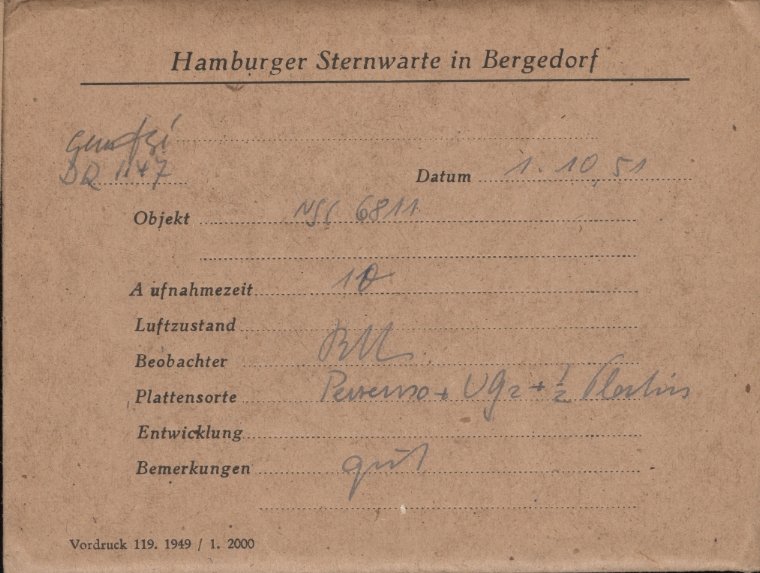 Hamburger Sternwarte in Bergedorf
DQ 1147
Datum 1. 10. 51
Objekt NGC 6811
Aufnahmezeit 10
Luftzustand
Beobachter
Plattensorte + UG2 + 1/2
Entwicklung
Bemerkungen gut
Vordruck 119. 1949 / 1. 2000